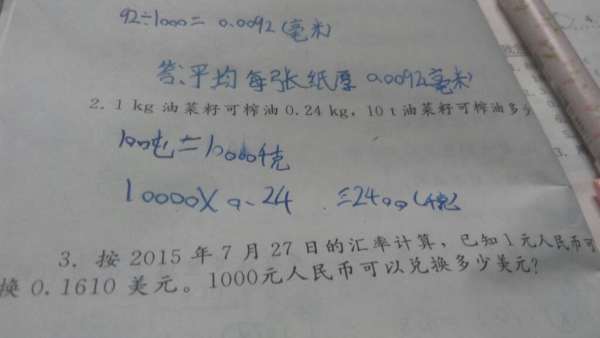 92÷1000= 0.0092(毫米)
答:平均每张纸厚 0.0092毫米
2. 1 kg 油菜籽可榨油 0.24 kg, 10 t 油菜籽可榨油多
=10000千克
10000×0.24 =2400(千克)
3. 按 2015 年 7 月 27 日的汇率计算,已知1元人民币可
换 0.1610 美元。1000元人民币可以兑换多少美元?